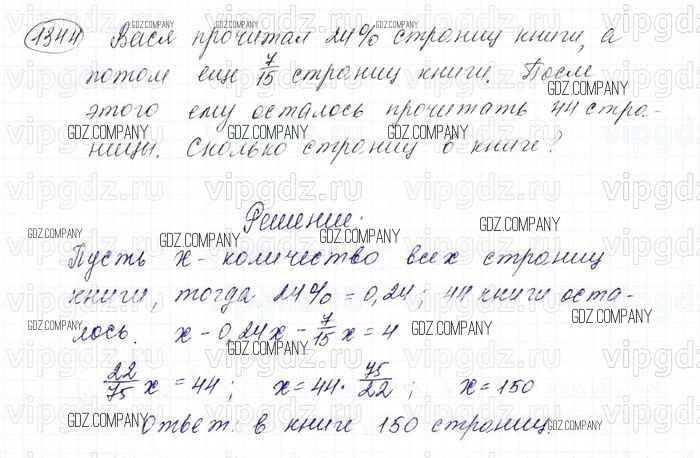 1344 Вася прочитал 24% страниц книги, а
потом еще 7/15 страниц книги. После
этого ему осталось прочитать 44 стра-
ницы. Сколько страниц в книге?
Решение:
Пусть x - количество всех страниц
книги, тогда 24% = 0,24; 44 книги оста-
лось. x - 0,24x - 7/15 x = 4
22/75 x = 44; x = 44 · 75/22; x = 150
Ответ: в книге 150 страниц.
GDZ.COMPANY
vipgdz.ru